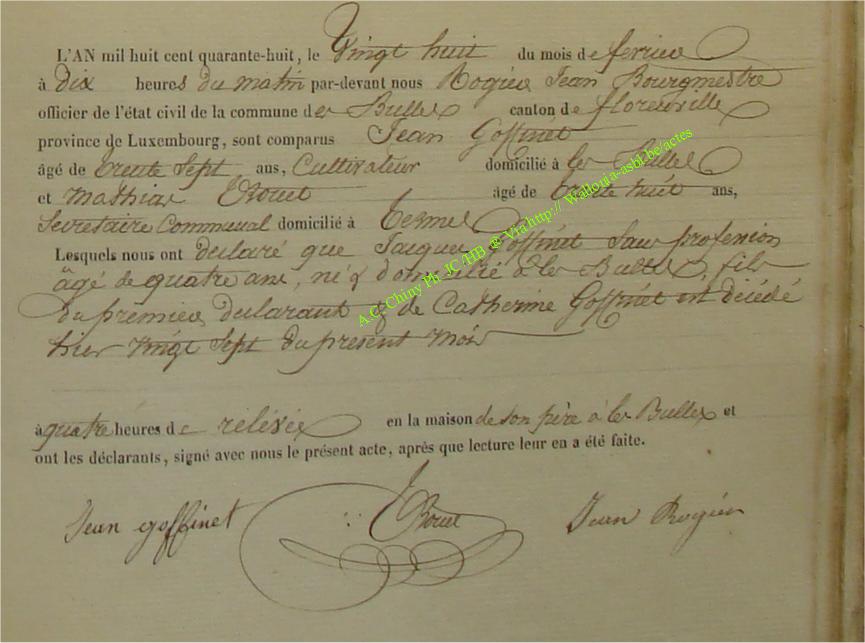 L'AN mil huit cent quarante-huit, le Vingt huit du mois de fevrier
à dix heures du matin par-devant nous Rogier Jean Bourgmestre
officier de l'état civil de la commune des Bulles canton de florenville
province de Luxembourg, sont comparus Jean Goffinet
âgé de trente Sept ans, Cultivateur domicilié à les Bulles
et Mathias âgé de trente huit ans,
Secretaire Communal domicilié à Termes
Lesquels nous ont declaré que Jacques Goffinet Sans profession
âgé de quatre ans, né & domicilié à les Bulles, fils
du premier declarant & de Catherine Goffinet est décédé
hier Vingt Sept du present mois
à quatre heures de relévée en la maison de son père à les Bulles et
ont les déclarants, signé avec nous le présent acte, après que lecture leur en a été faite.
Jean goffinet Jean Rogier
A.C. Chiny Ph. JC /HB @ Via http:// Wallonia-asbl.be/actes